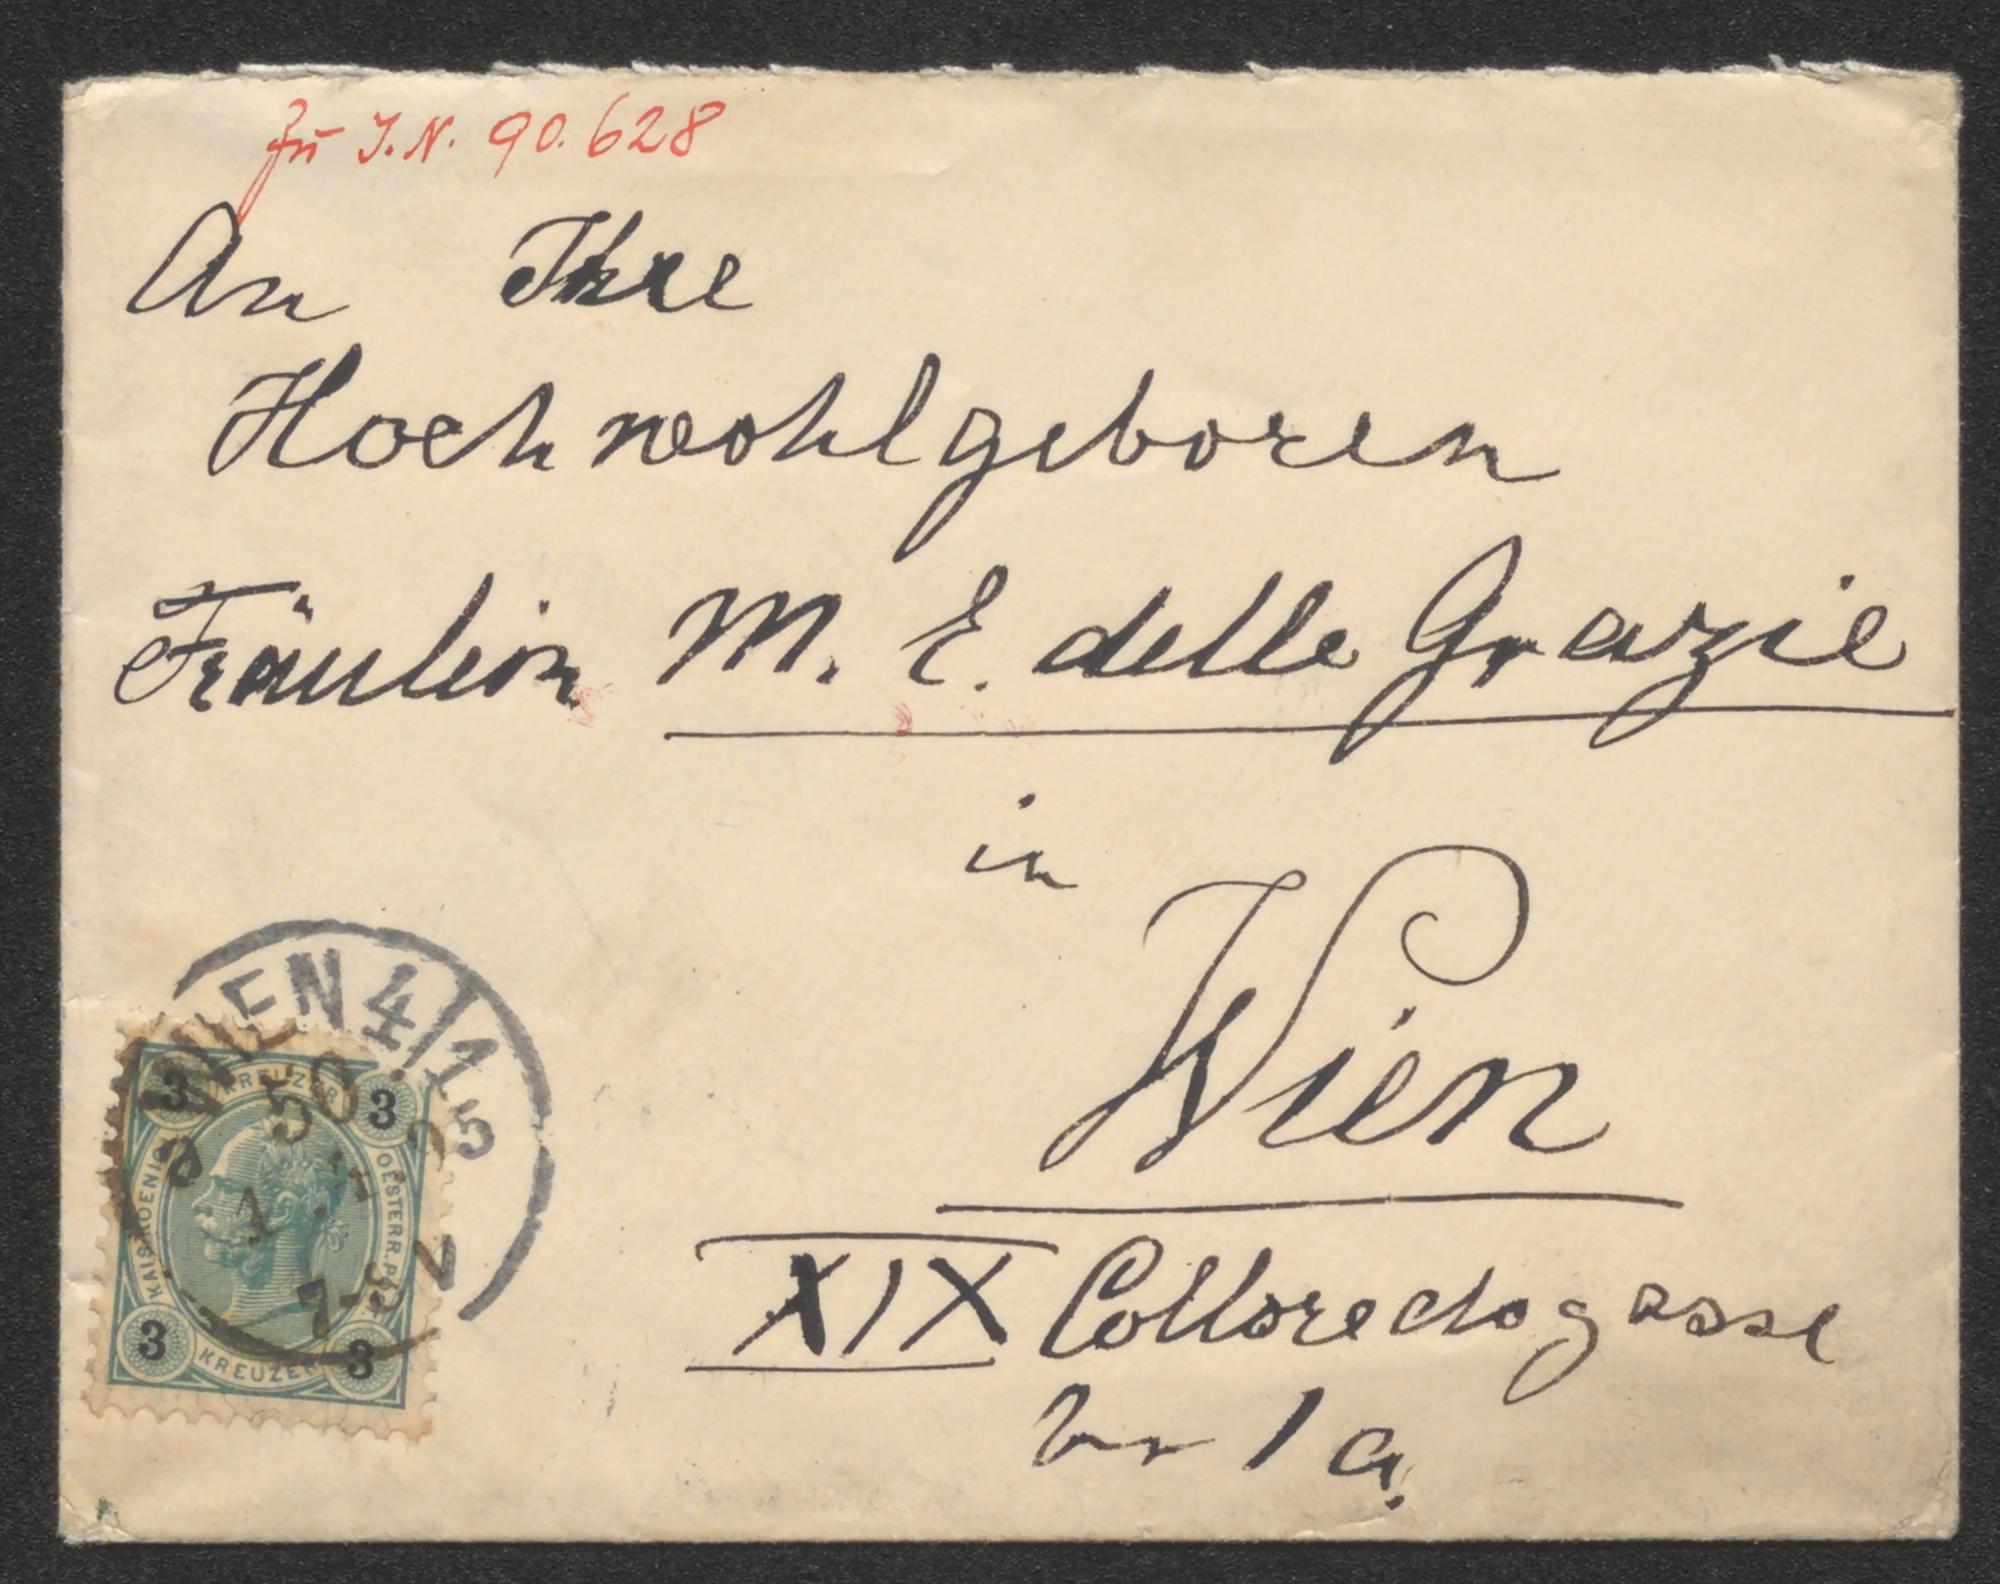 zu I.N. 90.628
An Ihre
Hochwohlgeboren
Fräulein M. E. delle Grazie
in
Wien
XIX Colloredogasse
Nr 1 a.
WIEN 4/1
50
3 KREUZER 3
KAIS. KOENIGL. OESTERR. POST
3 KREUZER 3